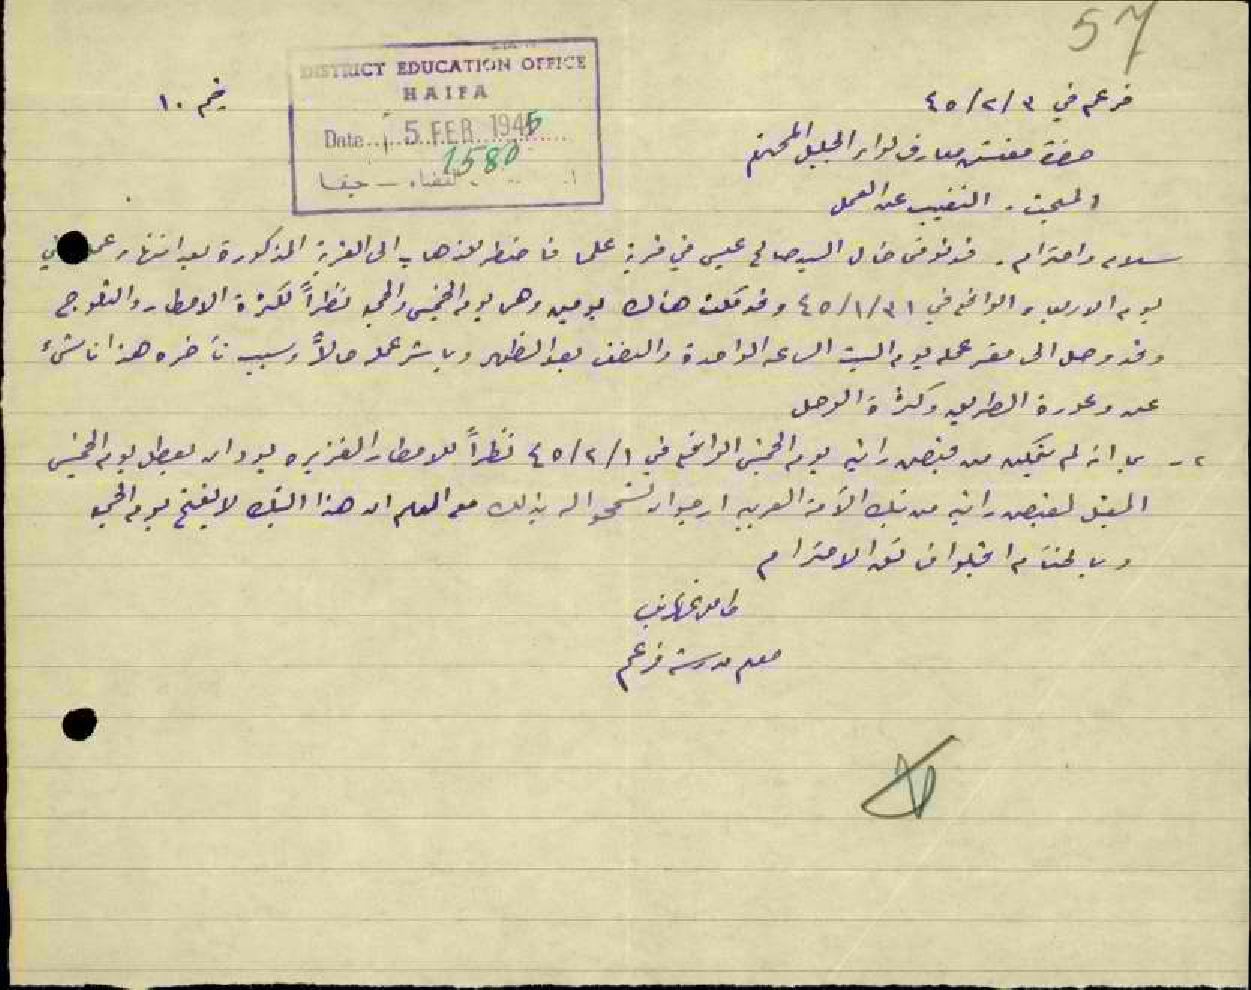 57
DISTRICT EDUCATION OFFICE
HAIFA
Date 5 FEB 1945
1580
القضاء - حيفا
فرعم في ٣/٢/٤٥
١٠
حضرة مفتش معارف لواء الجليل المحترم
المبحث . التغيب عن العمل
سلام واحترام . قد توفى خال السيد صالح عيسى في قرية علما فاضطر للذهاب الى القرية المذكورة بعد انتهاء عمله في
يوم الاربعاء الواقع في ٣١/١/٤٥ وقد مكث هناك يومين وهي يوم الخميس والجمعة نظراً لكثرة الامطار والثلوج
وقد وصل الى مقر عمله يوم السبت الساعة الواحدة والنصف بعد الظهر وباشر عمله حالاً وسبب تأخره هذا ناشئ
عن وعورة الطريق وكثرة الوحل
٢- بما انه لم يتمكن من قبض راتبه يوم الخميس الواقع في ١/٢/٤٥ نظراً للامطار الغزيرة يود ان يعطل يوم الخميس
المقبل لقبض راتبه من بنك الأمة العربية ارجو ان تسمحوا له بذلك مع العلم ان هذا البنك لا يفتح يوم الجمعة
وبالختام اقبلوا فائق الاحترام
معلم مدرسة فرعم